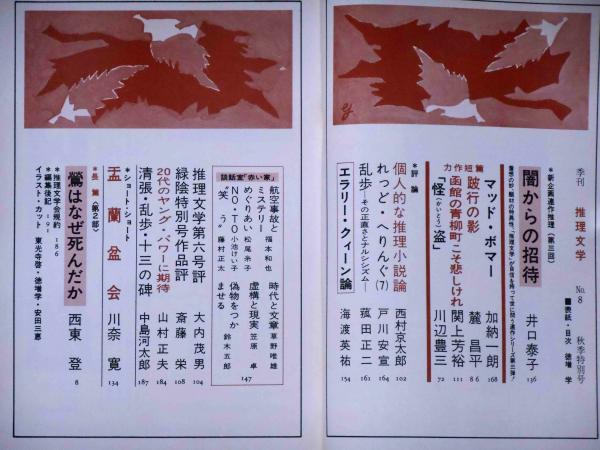 季刊 推理文学 No.8 秋季特別号
■表紙・目次 徳増 学
＊新企画連作推理（第三回）
闇からの招待 井口泰子 136
力作短篇
マッド・ボマー 加納一朗 168
跛行の影 麓 昌平 86
函館の青柳町こそ悲しけれ 関上芳裕 111
「怪（かいとう）盗」 川辺豊三 72
＊評論
個人的な推理小説論 西村京太郎 102
れっど・へりんぐ(7) 戸川安宣 164
乱歩―その正直さとナルシシズム― 蓜田正二 161
エラリー・クイーン論 海渡英祐 154
談話室“赤い家”
航空事故とミステリー 福本和也
めぐりあい 松尾糸子
NO・TO 小池けい子
“笑う” 藤村正太
時代と文章 草野唯雄
虚構と現実 笠原 卓
偽物をつかませる 鈴木五郎
147
推理文学第六号評 大内茂男 104
緑陰特別号作品評 斎藤 栄 178
20代のヤング・パワーに期待 山村正夫 184
清張・乱歩・十三の碑 中島河太郎 187
＊ショート・ショート
盂蘭盆会 川奈 寛 134
＊長篇〈第2部〉
鶯はなぜ死んだか 西東 登 8
＊推理文学会規約 186
＊編集後記 191
イラスト・カット 東光寺啓・徳増学・安田三恵